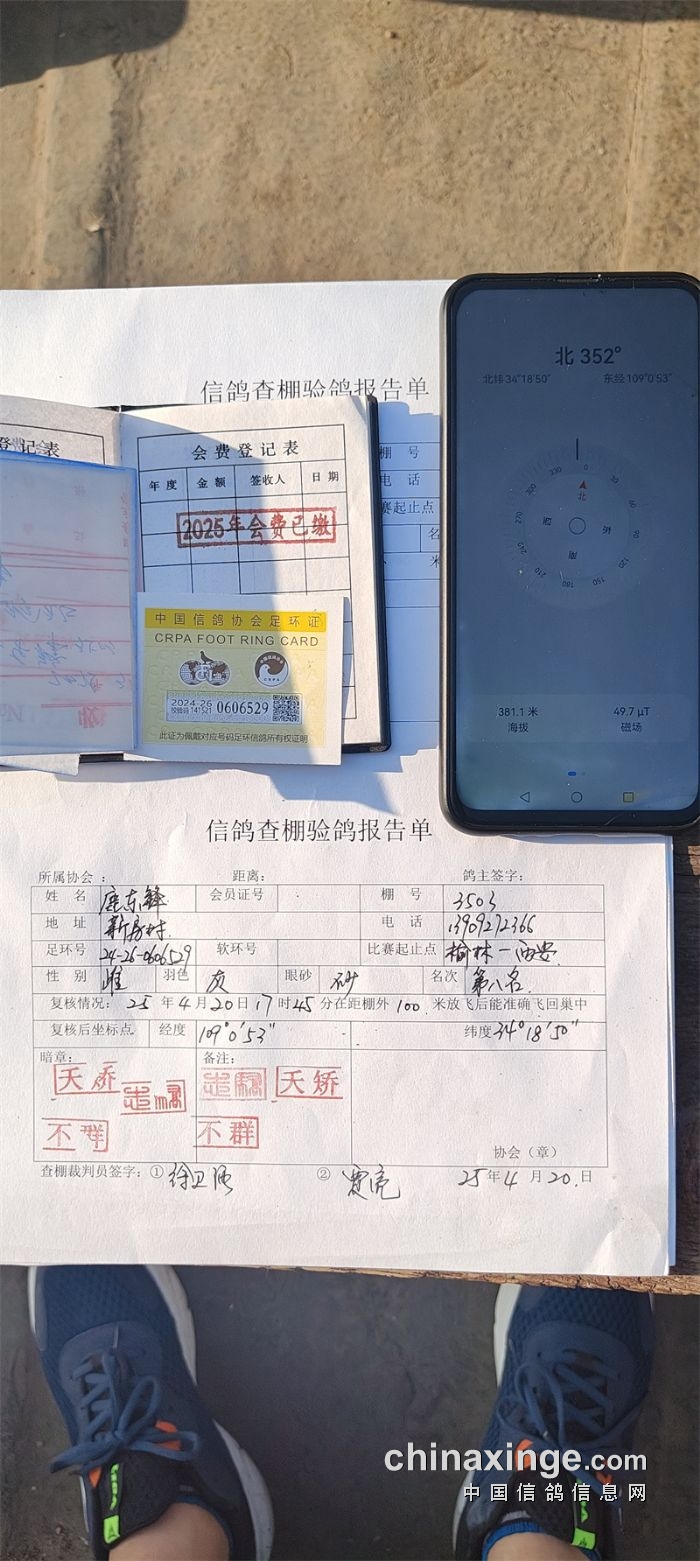 北 352°
北纬34°18'50" 东经109°0'53"
信鸽查棚验鸽报告单
登记表
会费登记表
年度 金额 签收人 日期
2025年会费已缴
棚号
电话
赛起止点
名
米
0 30 60 90 120 150 180 210 240 270 300 330
北
东
南
西
中国信鸽协会足环证
CRPA FOOT RING CARD
CRPA
2024-26 0606529
校验码 141521
此证为佩戴对应号码足环信鸽所有权证明
381.1 米 49.7 μT
海拔 磁场
信鸽查棚验鸽报告单
所属协会： 距离： 鸽主签字：
姓名 鹿东锋 会员证号 棚号 3503
地址 新房村 电话 13909272366
足环号 24-26-0606529 软环号 比赛起止点 榆林—西安
性别 雌 羽色 灰 眼砂 砂 名次 第八名
复核情况：25年4月20日17时45分在距棚外100米放飞后能准确飞回巢中
复核后坐标点 经度 109°0'53" 纬度34°18'50"
暗章： 备注：
天娇 天矫
不群 不群
协会（章）
查棚裁判员签字：① ② 贾亮 25年4月20日
chinaxinge.com
中国信鸽信息网